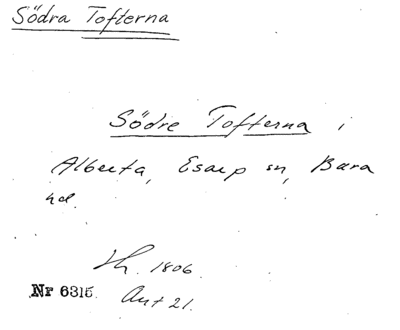 Södra Tofterna
Södre Tofterna i
Alberta, Esarp sn, Bara
hd.
Lh. 1806.
Nr 6315. Akt 21.